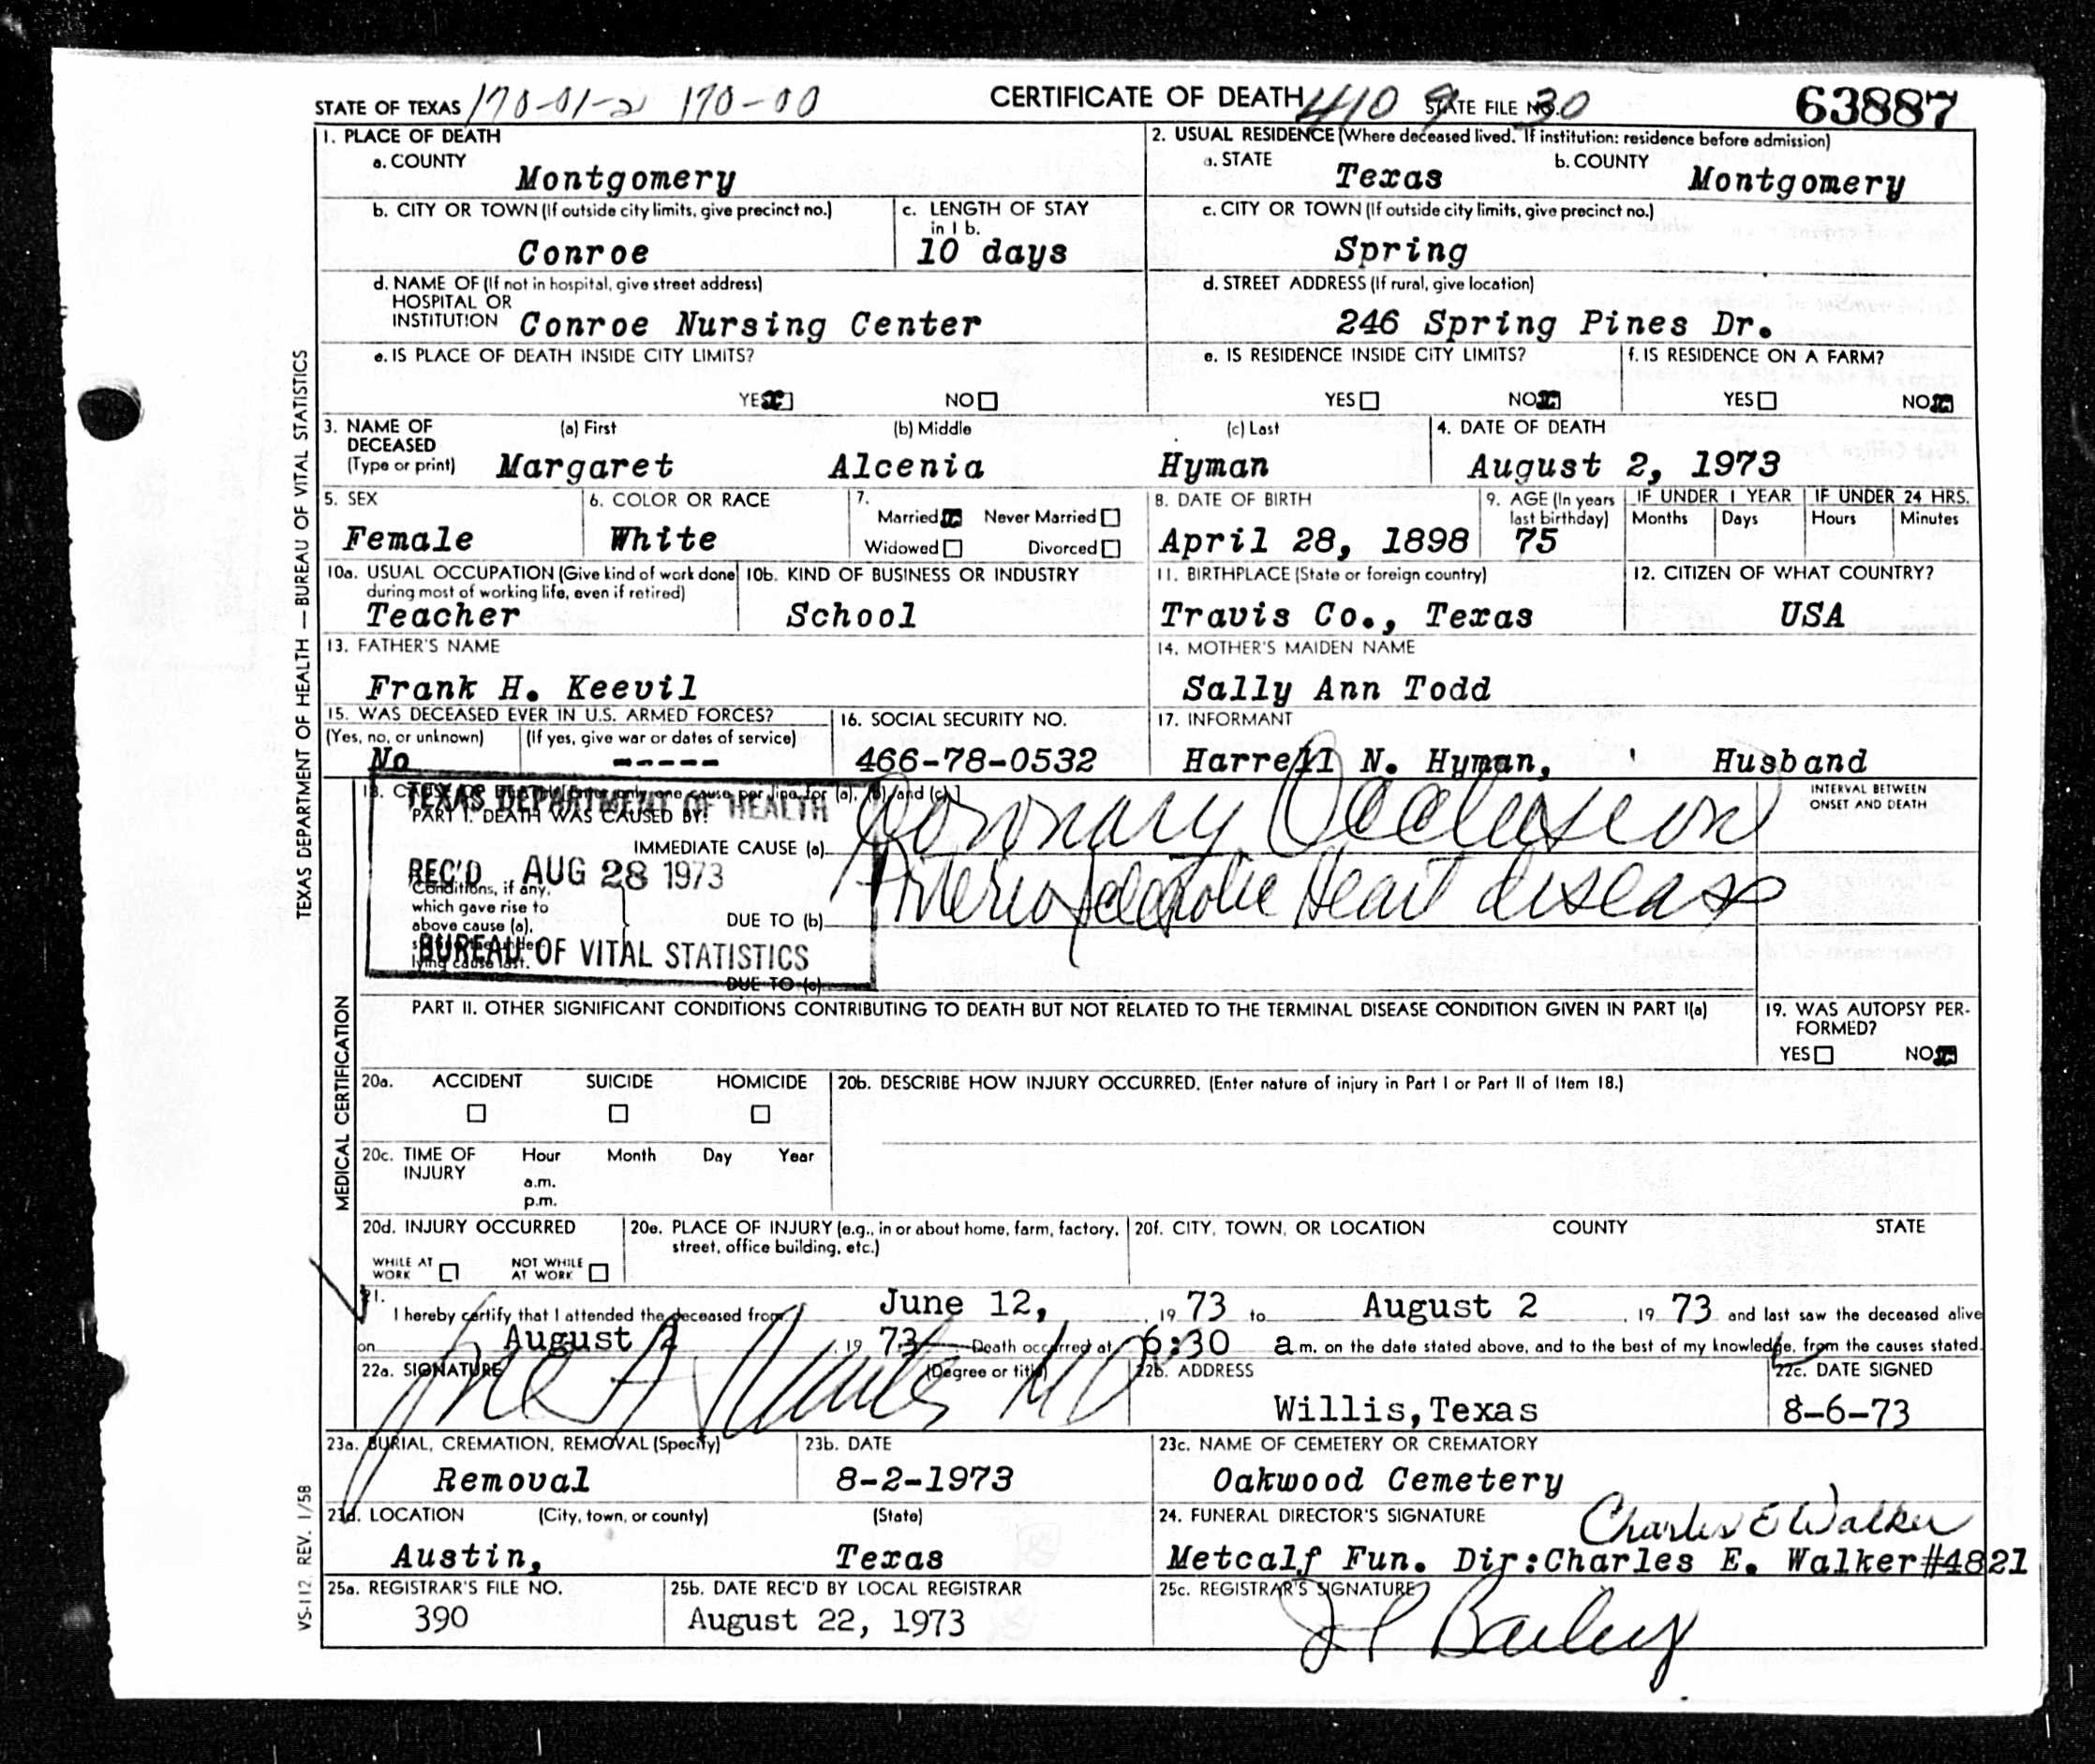 STATE OF TEXAS 170-01-2 170-00 CERTIFICATE OF DEATH 410 9 STATE FILE NO. 30 63887
1. PLACE OF DEATH
a. COUNTY
Montgomery
2. USUAL RESIDENCE (Where deceased lived. If institution: residence before admission)
a. STATE Texas b. COUNTY Montgomery
b. CITY OR TOWN (If outside city limits, give precinct no.)
Conroe
c. LENGTH OF STAY in 1 b.
10 days
c. CITY OR TOWN (If outside city limits, give precinct no.)
Spring
d. NAME OF (If not in hospital, give street address)
HOSPITAL OR
INSTITUTION Conroe Nursing Center
d. STREET ADDRESS (If rural, give location)
246 Spring Pines Dr.
e. IS PLACE OF DEATH INSIDE CITY LIMITS?
YES NO
e. IS RESIDENCE INSIDE CITY LIMITS?
YES NO
f. IS RESIDENCE ON A FARM?
YES NO
3. NAME OF DECEASED
(Type or print)
(a) First (b) Middle (c) Last
Margaret Alcenia Hyman
4. DATE OF DEATH
August 2, 1973
5. SEX
Female
6. COLOR OR RACE
White
7.
Married Never Married
Widowed Divorced
8. DATE OF BIRTH
April 28, 1898
9. AGE (In years last birthday)
75
IF UNDER 1 YEAR IF UNDER 24 HRS.
Months Days Hours Minutes
10a. USUAL OCCUPATION (Give kind of work done
during most of working life, even if retired)
Teacher
10b. KIND OF BUSINESS OR INDUSTRY
School
11. BIRTHPLACE (State or foreign country)
Travis Co., Texas
12. CITIZEN OF WHAT COUNTRY?
USA
13. FATHER'S NAME
Frank H. Keevil
14. MOTHER'S MAIDEN NAME
Sally Ann Todd
15. WAS DECEASED EVER IN U.S. ARMED FORCES?
(Yes, no, or unknown) (If yes, give war or dates of service)
No -----
16. SOCIAL SECURITY NO.
466-78-0532
17. INFORMANT
Harrell N. Hyman, Husband
18. CAUSE OF DEATH [Enter only one cause per line for (a), (b) and (c).]
PART I. DEATH WAS CAUSED BY:
INTERVAL BETWEEN
ONSET AND DEATH
IMMEDIATE CAUSE (a) Coronary Occlusion
Conditions, if any,
which gave rise to
above cause (a),
stating the under-
lying cause last.
DUE TO (b) Arteriosclerotic Heart disease
DUE TO (c)
TEXAS DEPARTMENT OF HEALTH
REC'D AUG 28 1973
BUREAU OF VITAL STATISTICS
PART II. OTHER SIGNIFICANT CONDITIONS CONTRIBUTING TO DEATH BUT NOT RELATED TO THE TERMINAL DISEASE CONDITION GIVEN IN PART I(a)
19. WAS AUTOPSY PER-
FORMED?
YES NO
20a. ACCIDENT SUICIDE HOMICIDE
20b. DESCRIBE HOW INJURY OCCURRED. (Enter nature of injury in Part I or Part II of Item 18.)
20c. TIME OF INJURY
Hour Month Day Year
a.m.
p.m.
20d. INJURY OCCURRED
WHILE AT WORK NOT WHILE AT WORK
20e. PLACE OF INJURY (e.g., in or about home, farm, factory,
street, office building, etc.)
20f. CITY, TOWN, OR LOCATION COUNTY STATE
21.
I hereby certify that I attended the deceased from June 12, 19 73 to August 2 19 73 and last saw the deceased alive
on August 2 19 73 Death occurred at 6:30 a m. on the date stated above, and to the best of my knowledge, from the causes stated.
22a. SIGNATURE (Degree or title)
MD
22b. ADDRESS
Willis, Texas
22c. DATE SIGNED
8-6-73
23a. BURIAL, CREMATION, REMOVAL (Specify)
Removal
23b. DATE
8-2-1973
23c. NAME OF CEMETERY OR CREMATORY
Oakwood Cemetery
23d. LOCATION (City, town, or county) (State)
Austin, Texas
24. FUNERAL DIRECTOR'S SIGNATURE Charles E Walker
Metcalf Fun. Dir:Charles E. Walker#4821
25a. REGISTRAR'S FILE NO.
390
25b. DATE REC'D BY LOCAL REGISTRAR
August 22, 1973
25c. REGISTRAR'S SIGNATURE
Bailey
TEXAS DEPARTMENT OF HEALTH — BUREAU OF VITAL STATISTICS
MEDICAL CERTIFICATION
VS-112 REV. 1/58